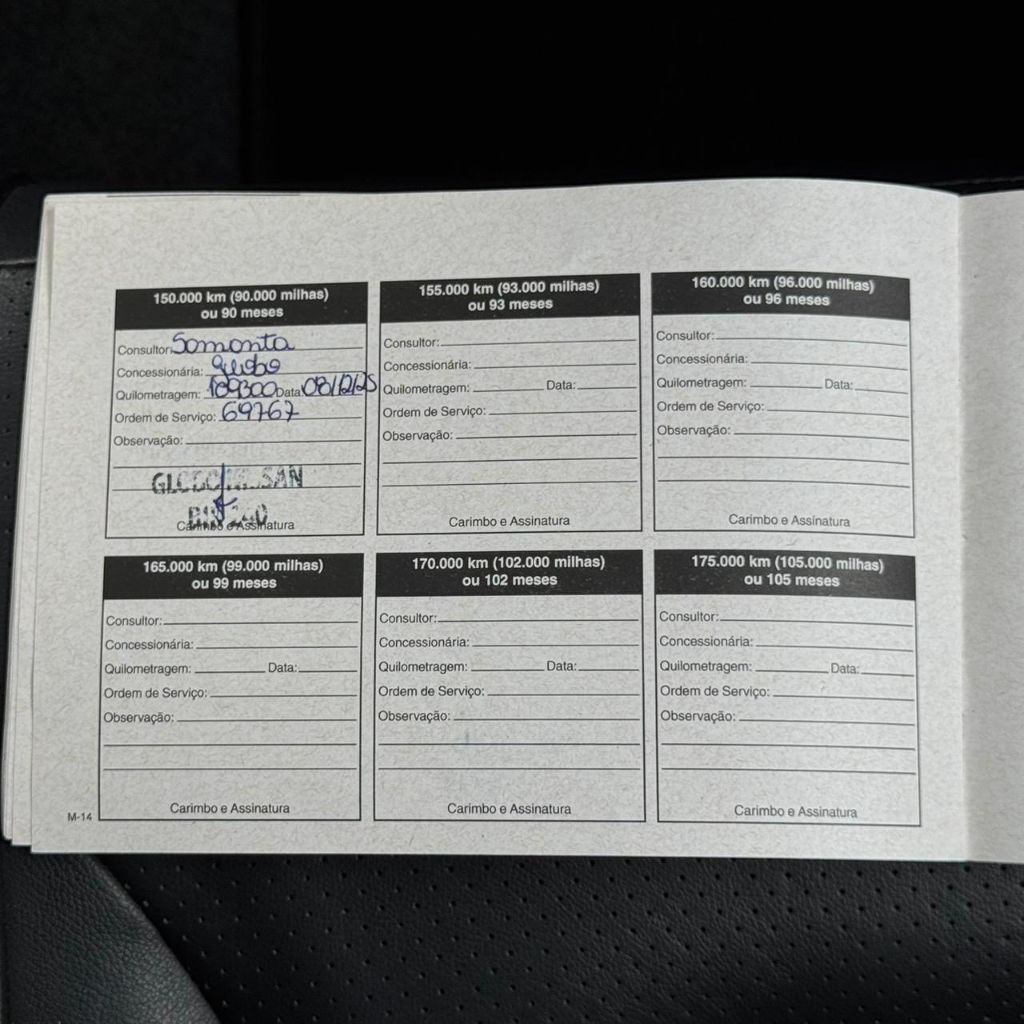 150.000 km (90.000 milhas)
ou 90 meses
Consultor:
Concessionária:
Quilometragem: Data: 08/12/25
Ordem de Serviço: 69767
Observação:
Carimbo e Assinatura
155.000 km (93.000 milhas)
ou 93 meses
Consultor:
Concessionária:
Quilometragem: Data:
Ordem de Serviço:
Observação:
Carimbo e Assinatura
160.000 km (96.000 milhas)
ou 96 meses
Consultor:
Concessionária:
Quilometragem: Data:
Ordem de Serviço:
Observação:
Carimbo e Assinatura
165.000 km (99.000 milhas)
ou 99 meses
Consultor:
Concessionária:
Quilometragem: Data:
Ordem de Serviço:
Observação:
Carimbo e Assinatura
170.000 km (102.000 milhas)
ou 102 meses
Consultor:
Concessionária:
Quilometragem: Data:
Ordem de Serviço:
Observação:
Carimbo e Assinatura
175.000 km (105.000 milhas)
ou 105 meses
Consultor:
Concessionária:
Quilometragem: Data:
Ordem de Serviço:
Observação:
Carimbo e Assinatura
M-14